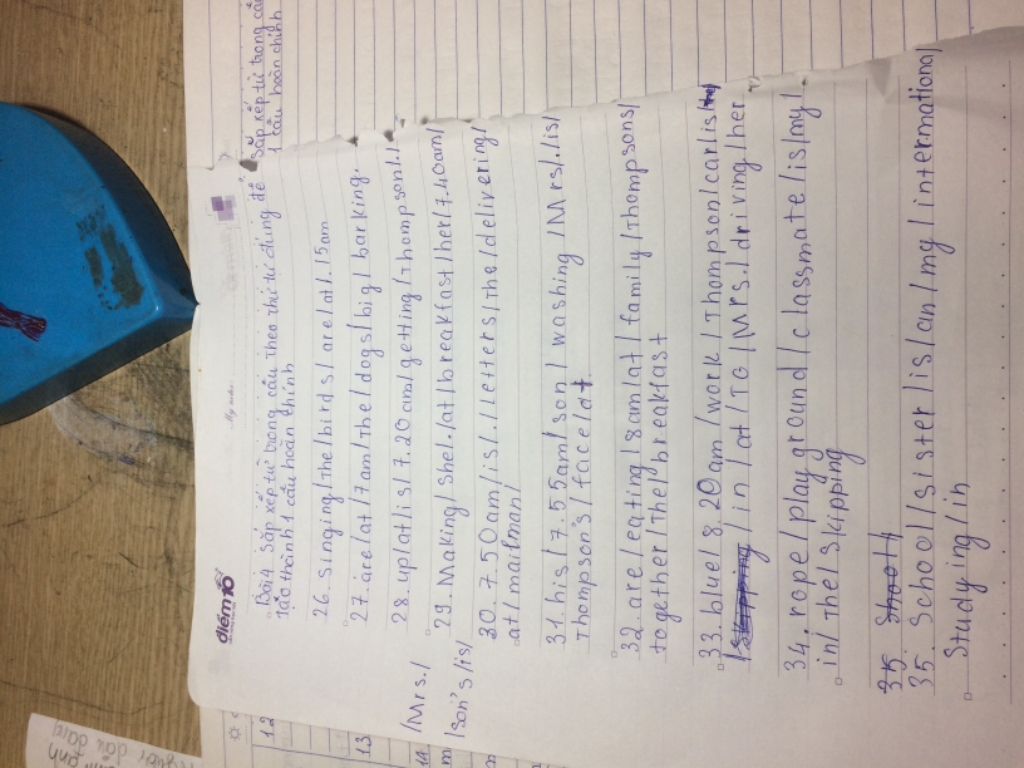 điểm 10
Bài 4 Sắp xếp từ trong câu theo thứ tự đúng để
tạo thành 1 câu hoàn chỉnh
26. singing / the / birds / are / at / . 15am
27. are / at / 7am / the / dogs / big / barking.
28. up / at / is / 7.20am / getting / Thompson / .
/ Mrs. /
29. Making / she / . / at / breakfast / her / 7.40am /
/ son's / is /
30. 7.50am / is / . / Letters / the / delivering /
at / mailman /
31. his / 7.55am / son / washing / Mrs. / is /
Thompson's / face / at.
32. are / eating / 8am / at / family / Thompsons /
together / the / breakfast
33. blue / 8.20am / work / Thompson / car / is /
/ in / at / TG / Mrs. / driving / her
34. rope / playground / classmate / is / my /
in / the / skipping
35.
35. School / sister / is / an / mg / international
studying / in
Sắp xếp từ trong câ
1 câu hoàn chỉnh
12
13
14